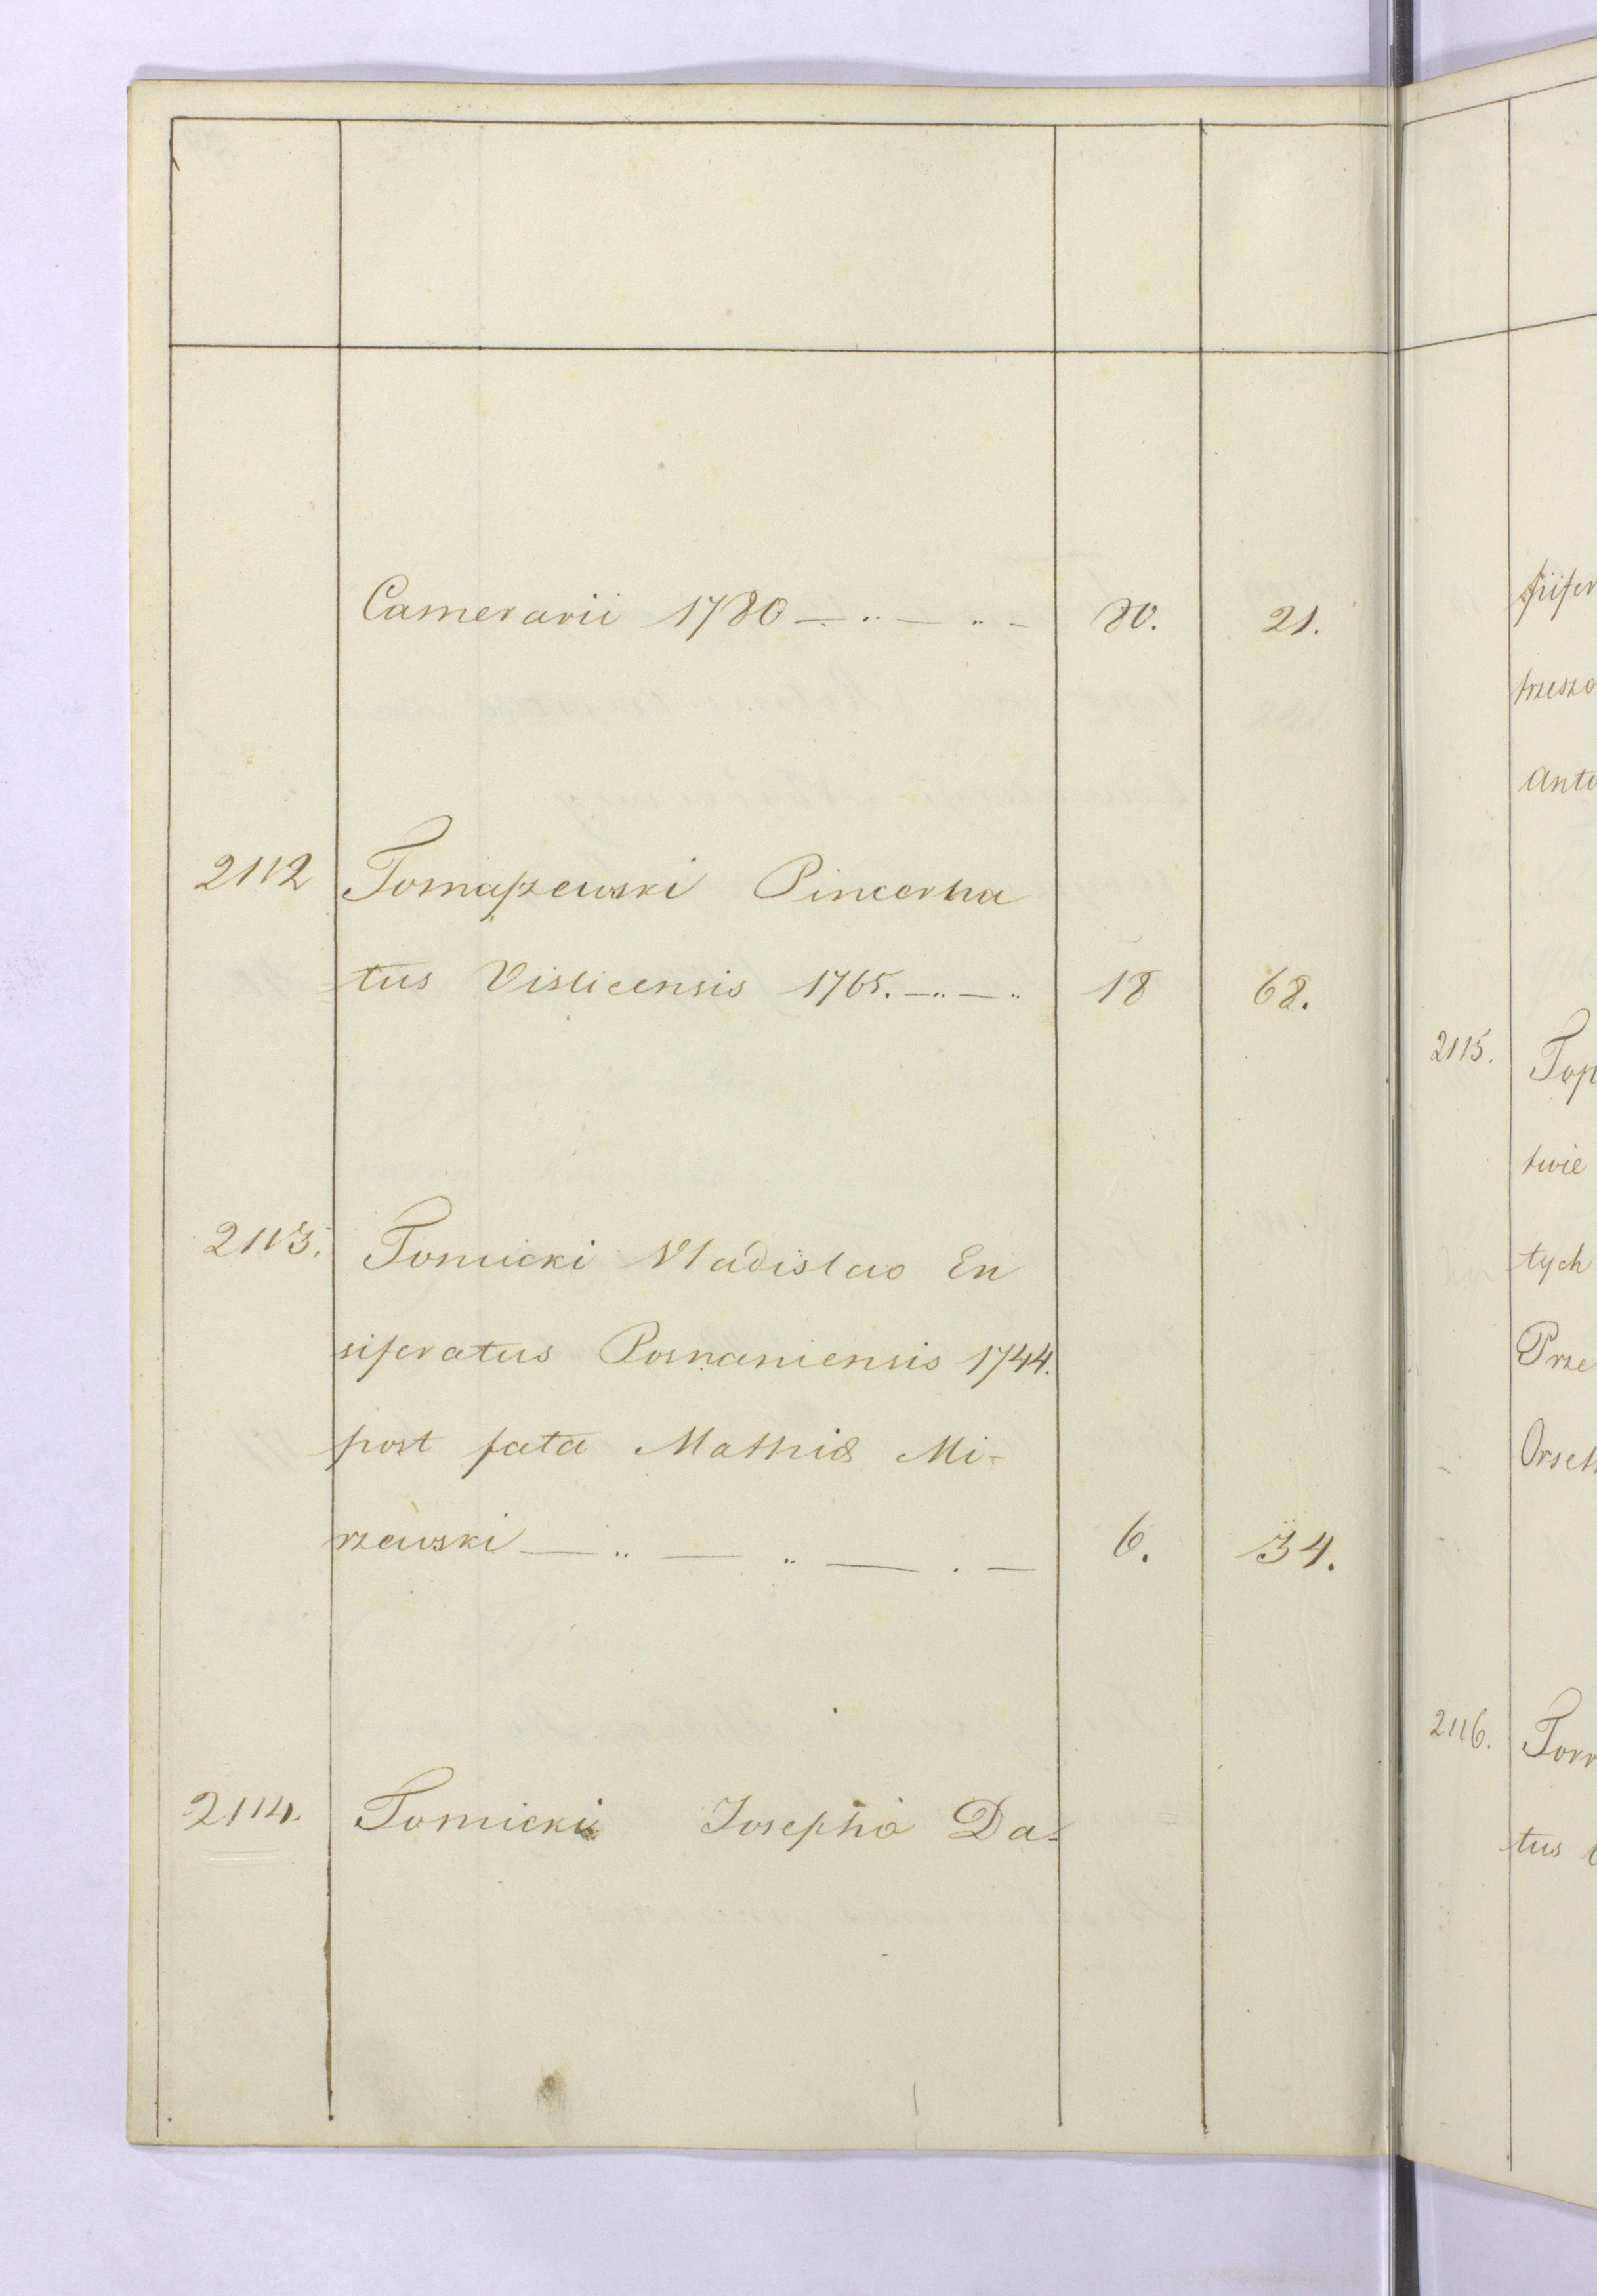 Camerarii 1780 — .. — .. - 80. 21.
2112 Tomaszewski Pincerna
tus Vislicensis 1765. — .. — .. 18 68.
2113. Tomicki Vladislao En
siferatus Posnaniensis 1744.
post fata Mathiæ Mi-
rzewski — .. — .. — . — 6. 34.
2114. Tomicki Josepho Da-
trzesz
Anto
2115. Top
twie
tych
Prze
Orset
2116.
tus